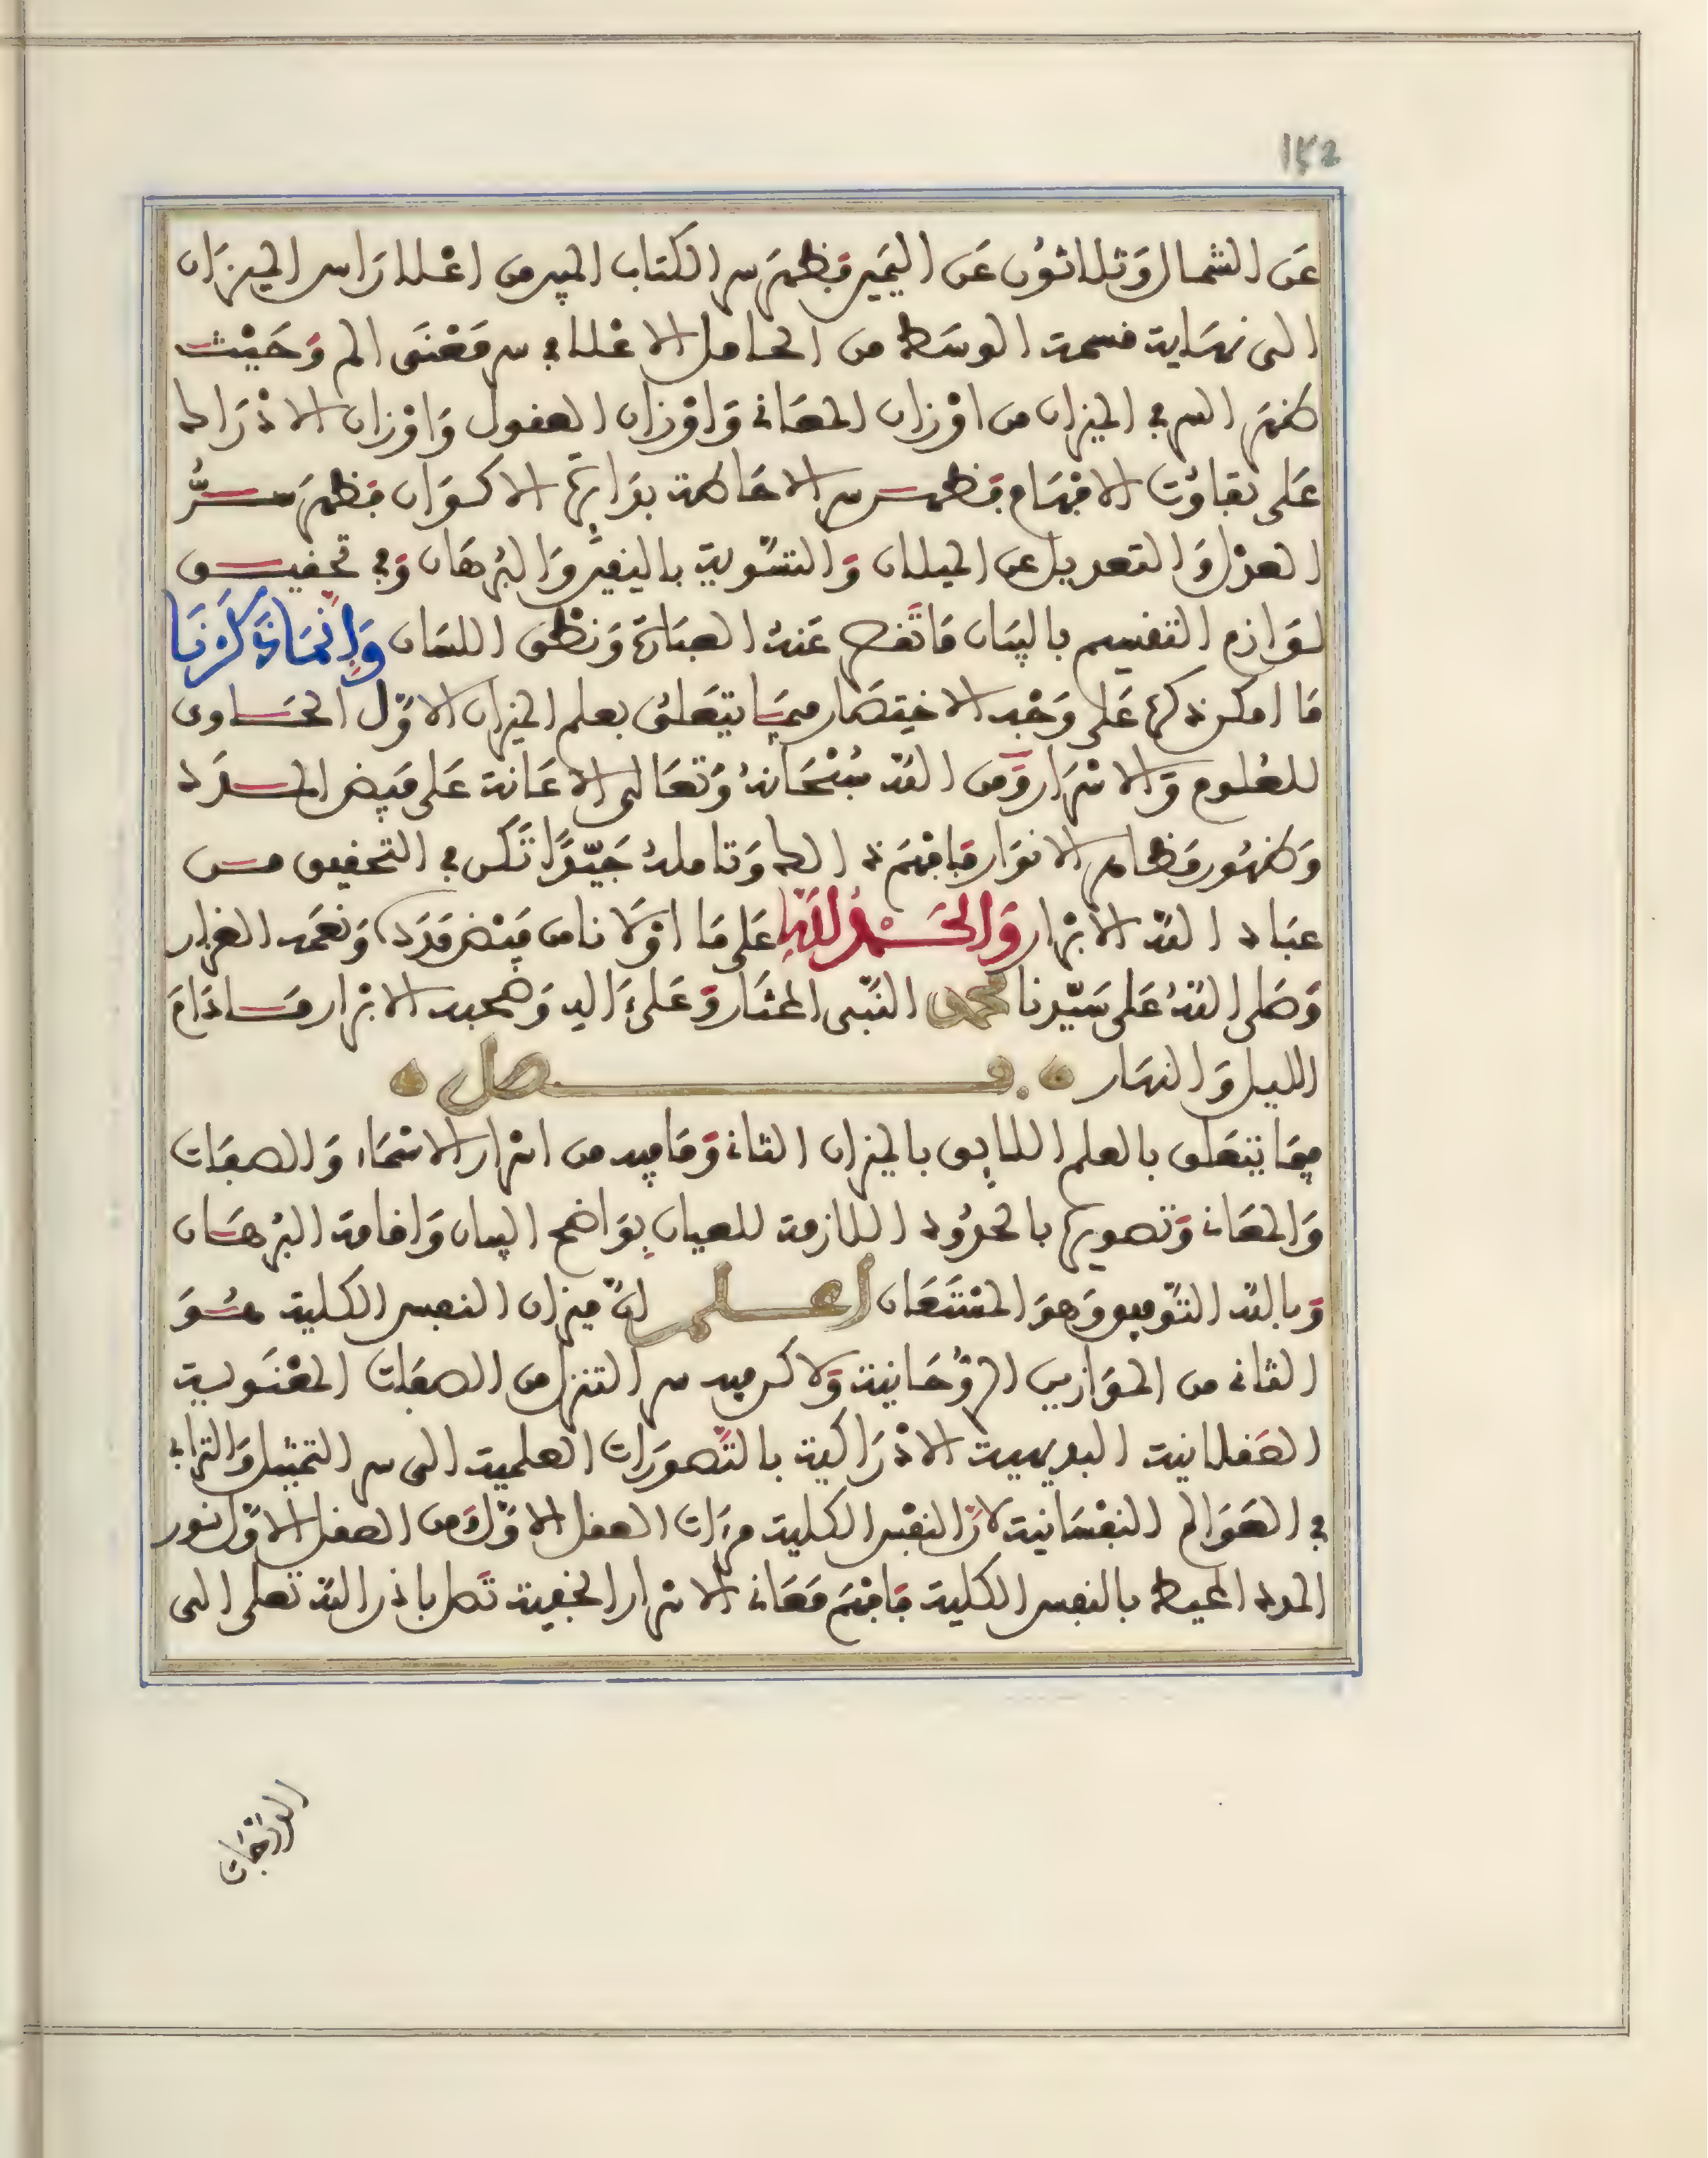 152
عَن الشمال وَثلاثوُن عَن اليَمين فظهَر سر الكتاب المبين من اعْلا رَاس الميزَان
الى نهَاية قسمة الوسَط من الحامل الاعْلا في سر مَعْنَى الم وَحَيْث
ظهَر السر في الميزان من اوْزان المعَاني وَاوْزان العقول وَاوْزان الادْرَاك
عَلى تفاوُت الافهَام فظهر سر الاحَاطة بدَايرَة الاكوَان فظهَر سرُّ
العدْل وَالتعديل عن الميلان وَالتسْوية باليقين وَالبُرهَان وَفي تحقيق
لوَازم التقسيم بالبيَان مَا تَقصر عَنهُ العبَارَة وَنطق اللسَان وَإنمَا ذَكَرْنَا
مَا امكن ذكره عَلى وَجْه الاختِصَار فيمَا يتعَلق بعلم الميزان الاوّل الحَاوى
للعُلوم وَالاسْرَار وَمن الله سُبْحَانهُ وَتعَالى الاعَانة عَلى فيض المدَد
وَظهُور مَظاهر الانوَار فافهَم ذالك وَتاملهُ جَيّدًا تَكن في التحقيق من
عبَاد الله الابْرار وَالحَمْدُ للهِ عَلى مَا اوْلانا من فَيْض مَدَده وَنعَمه الغزار
وَصَلى اللهُ عَلى سَيّدنا محمد النَبّى المختَار وَعَلىَ اله وَصحبه الابْرار مَا دَامَ
الليل وَالنهَار فصل
فيمَا يتعَلق بالعلم اللايق بالميزان الثاني وَمَا فيه من اسْرار الاسْمَاء وَالصفَات
وَالمعَاني وَتصويرها بالحدوُد اللازمة للعيان بوَاضح البيان وَاقامة البُرهَان
وَبالله التوّفيق وَهوَ المسْتَعَان اعلم انّ ميزان النفس الكلية هُوَ
الثاني من الموَازين الرّوُحَانية وَلاكن فيه سر التنزل من الصفات المعْنَوية
العَقلانية البديهية الادْرَاكية بالتصورَات العلمية الى سر التمثيل وَالتراءي
في العَوَالم النفْسَانية لانّ النفْس الكلية مرءات العقل الاوّل وَمن العقل الاوّل نور
المدد المحيط بالنفس الكلية فافهَم مَعَاني الاسْرار الخفية تَصل باذن الله تعَلى الى
الدرَجَات